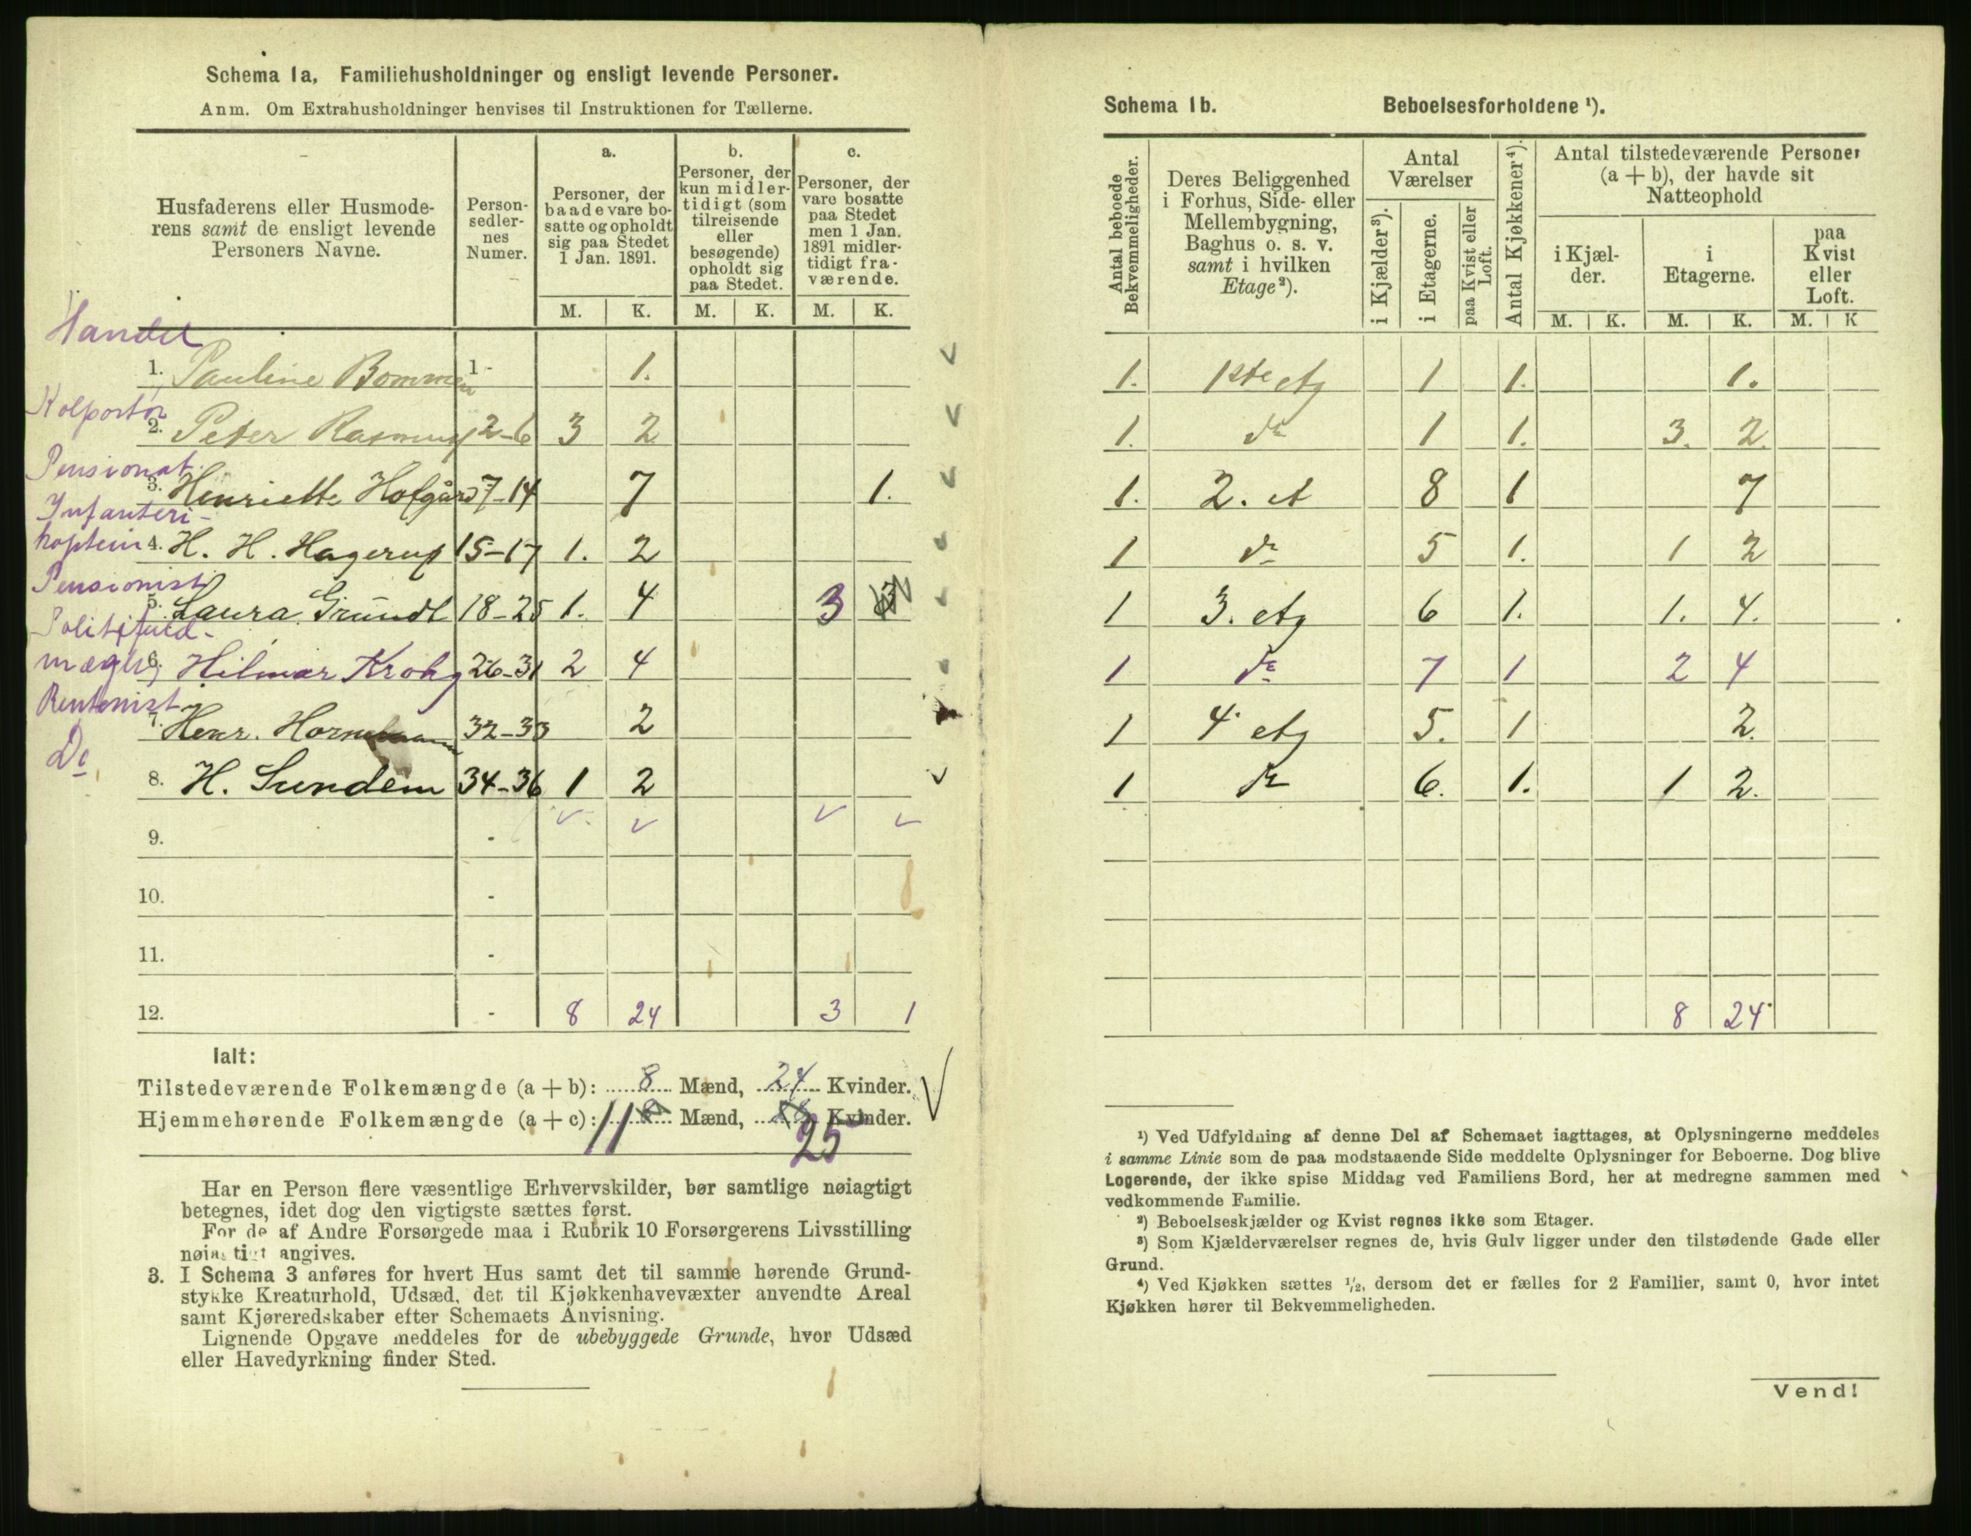 Schema 1a, Familiehusholdninger og ensligt levende Personer.
Anm. Om Extrahusholdninger henvises til Instruktionen for Tællerne.
Husfaderens eller Husmode-
rens samt de ensligt levende
Personers Navne.
Person-
sedler-
nes
Numer.
a.
Personer, der
baade vare bo-
satte og opholdt
sig paa Stedet
1 Jan. 1891.
b.
Personer, der
kun midler-
tidigt (som
tilreisende
eller
besøgende)
opholdt sig
paa Stedet.
c.
Personer, der
vare bosatte
paa Stedet
men 1 Jan.
1891 midler-
tidigt fra-
værende.
M. K. M. K. M. K.
Handel
1. Pauline Bommen 1 - 1.
Kolportør
2. Peter Rasmus 2-6 3 2
Pensionat
3. Henriette Hofgård 7-14 7 1.
Infanteri-
kaptein 4. H. H. Hagerup 15-17 1. 2
Pensionist
5. Laura Grundt 18-25 1. 4 3
Politifuld-
mægtig 6. Hilmar Krohg 26-31 2 4
Rentenist
7. Henr. Hornemann 32-33 2
Do
8. H. Sundem 34-36 1 2
9. -
10. -
11. -
12. - 8 24 3 1
Ialt:
Tilstedeværende Folkemængde (a + b): 8 Mænd, 24 Kvinder.
Hjemmehørende Folkemængde (a + c): 11 Mænd, 25 Kvinder.
Har en Person flere væsentlige Erhvervskilder, bør samtlige nøiagtigt
betegnes, idet dog den vigtigste sættes først.
For de af Andre Forsørgede maa i Rubrik 10 Forsørgerens Livsstilling
nøiagtigt angives.
3. I Schema 3 anføres for hvert Hus samt det til samme hørende Grund-
stykke Kreaturhold, Udsæd, det til Kjøkkenhavevæxter anvendte Areal
samt Kjøreredskaber efter Schemaets Anvisning.
Lignende Opgave meddeles for de ubebyggede Grunde, hvor Udsæd
eller Havedyrkning finder Sted.
Schema 1b. Beboelsesforholdene ¹).
Antal beboede
Bekvemmeligheder.
Deres Beliggenhed
i Forhus, Side- eller
Mellembygning,
Baghus o. s. v.
samt i hvilken
Etage²).
Antal
Værelser
i Kjælder³).
i Etagerne.
paa Kvist eller
Loft.
Antal Kjøkkener⁴).
Antal tilstedeværende Personer
(a + b), der havde sit
Natteophold
i Kjæl-
der.
i
Etagerne.
paa
Kvist
eller
Loft.
M. K. M. K. M. K
1. 1ste etg 1 1. 1.
1. do 1 1. 3. 2.
1. 2. et 8 1 7
1 do 5 1. 1 2
1 3. etg 6 1. 1. 4.
1 do 7 1 2 4
1 4 etg 5. 1 2.
1 do 6. 1. 1 2.
8 24
¹) Ved Udfyldning af denne Del af Schemaet iagttages, at Oplysningerne meddeles
i samme Linie som de paa modstaaende Side meddelte Oplysninger for Beboerne. Dog blive
Logerende, der ikke spise Middag ved Familiens Bord, her at medregne sammen med
vedkommende Familie.
²) Beboelseskjælder og Kvist regnes ikke som Etager.
³) Som Kjælderværelser regnes de, hvis Gulv ligger under den tilstødende Gade eller
Grund.
⁴) Ved Kjøkken sættes ½, dersom det er fælles for 2 Familier, samt 0, hvor intet
Kjøkken hører til Bekvemmeligheden.
Vend!